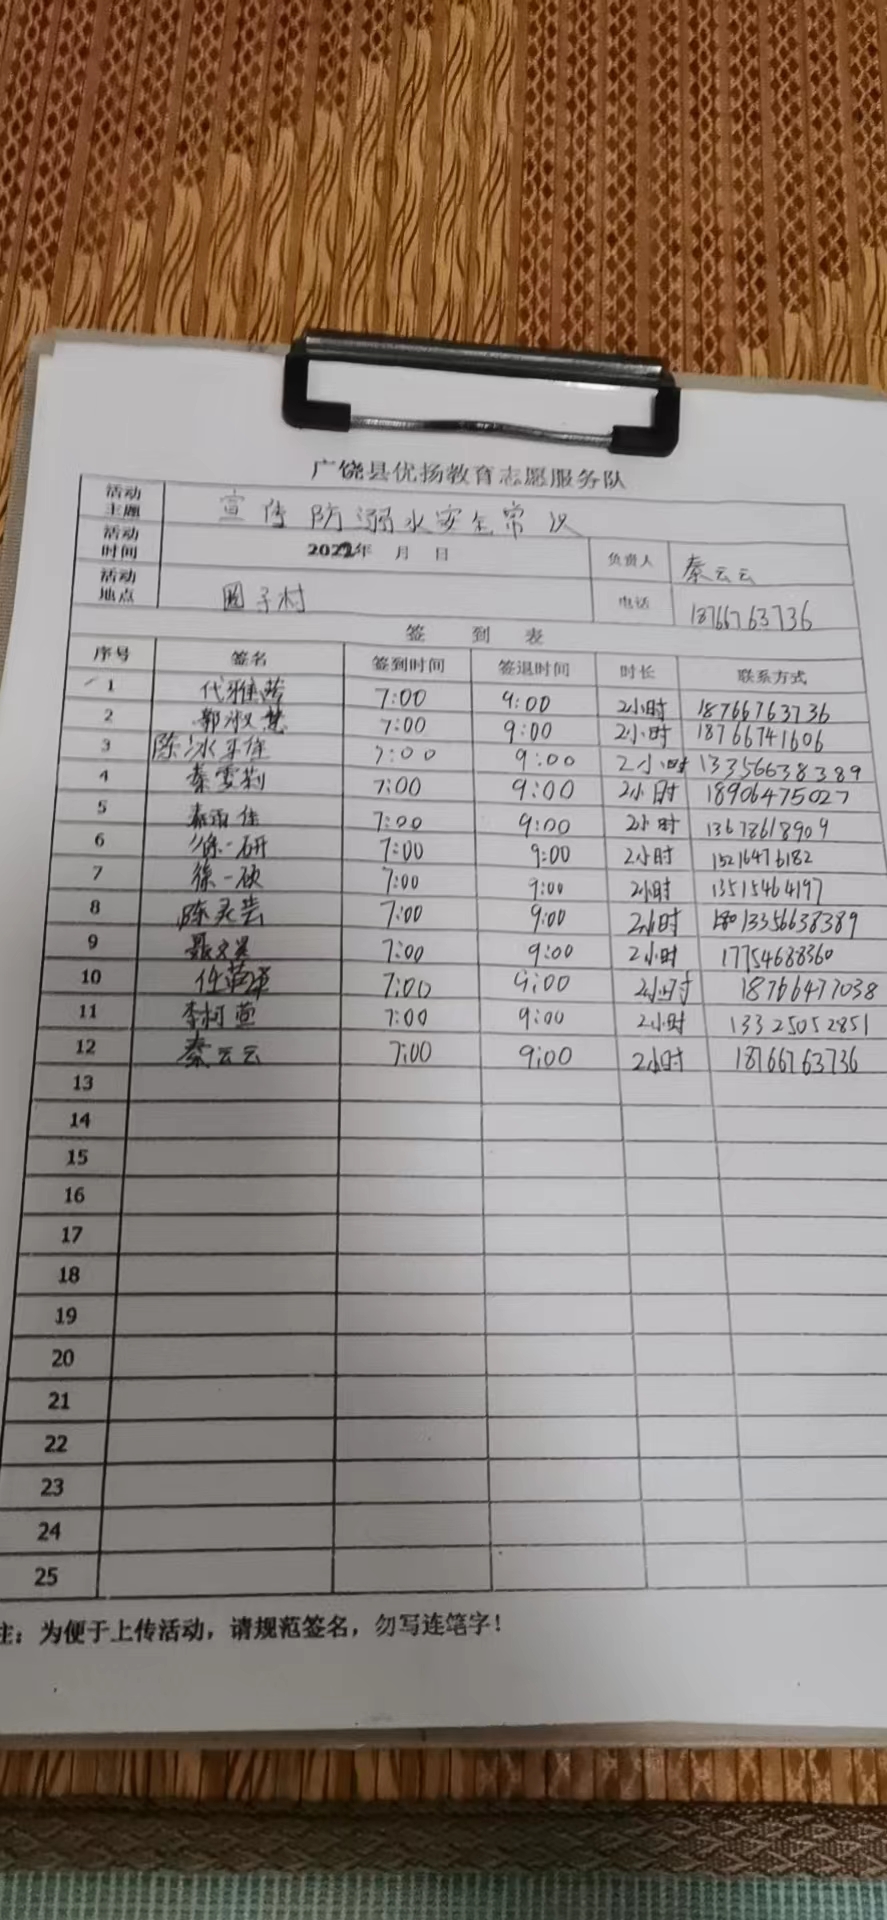 广饶县优扬教育志愿服务队
活动主题 宣传防溺水安全常识
活动时间 2022年 月 日 负责人 秦云云
活动地点 圈子村 电话 18766763736
签 到 表
序号 签名 签到时间 签退时间 时长 联系方式
1 代雅 7:00 9:00 2小时 18766763736
2 郭淑慧 7:00 9:00 2小时 18766741606
3 陈冰 7:00 9:00 2小时 13356638389
4 秦雪莉 7:00 9:00 2小时 18906475027
5 秦雨佳 7:00 9:00 2小时 13678618909
6 徐一研 7:00 9:00 2小时 15216476182
7 徐一硕 7:00 9:00 2小时 13515464197
8 陈灵芸 7:00 9:00 2小时 13356638389
9 聂文昊 7:00 9:00 2小时 17754688360
10 任 7:00 9:00 2小时 18766477038
11 李柯萱 7:00 9:00 2小时 13325052851
12 秦云云 7:00 9:00 2小时 18766763736
13
14
15
16
17
18
19
20
21
22
23
24
25
注：为便于上传活动，请规范签名，勿写连笔字！